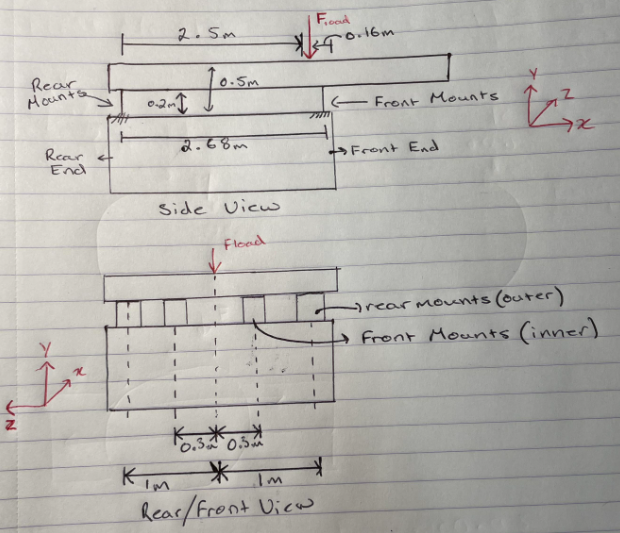 2.5m
Fload
0.16m
Rear Mounts
0.5m
0.2m
Front Mounts
Y
Z
x
2.68m
Rear End
Front End
Side View
Fload
rear mounts (outer)
Front Mounts (inner)
Y
x
Z
0.3m
0.3m
1m
1m
Rear/Front View